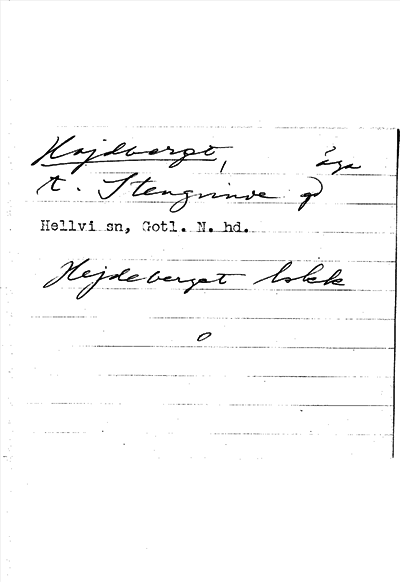 Hajdbergt, äga
t. Stenqvinde gd
Hellvi sn, Gotl. N. hd.
Hejdeberget lokk
o